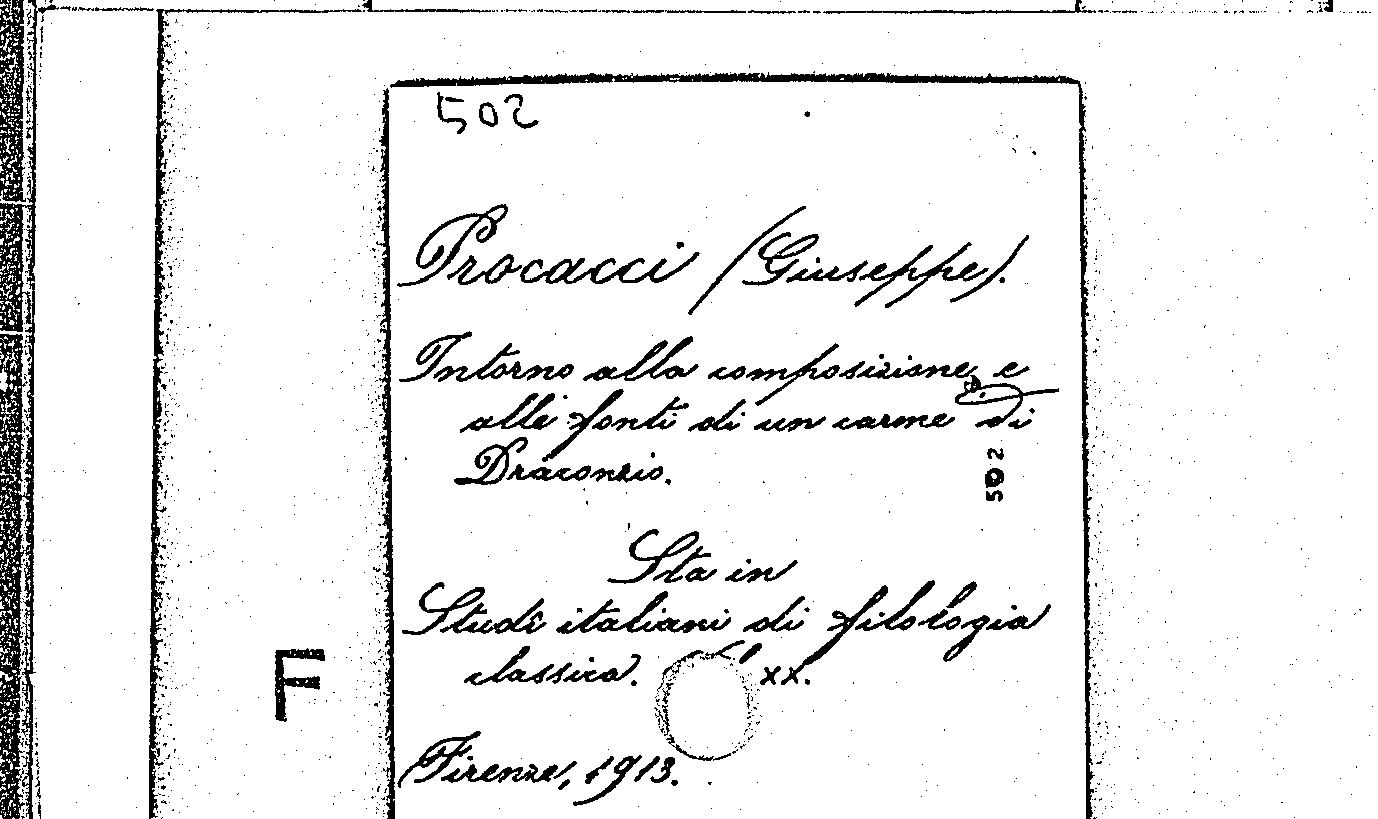 502
Procacci (Giuseppe).
Intorno alla composizione e
alle fonti di un carme di
Draconzio.
502
Sta in
Studî italiani di filologia
classica. XX.
F
Firenze, 1913.